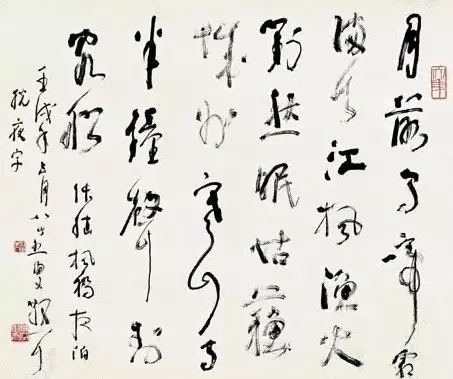 月落烏啼霜
滿天江楓漁火
對愁眠姑蘇
城外寒山寺
半鐘聲到
客船 張繼楓橋夜泊
壬戌年 月八十五叟散耳
脱夜字